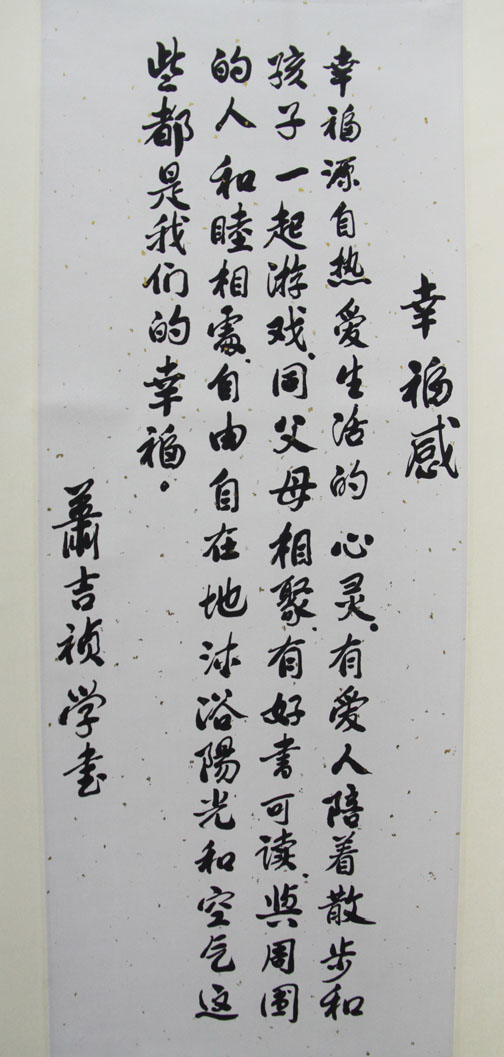 幸福感
幸福源自热爱生活的心灵。有爱人陪着散步和
孩子一起游戏、同父母相聚、有好书可读、與周围
的人和睦相處、自由自在地沐浴陽光和空气这
些都是我们的幸福。
蕭吉祯学书